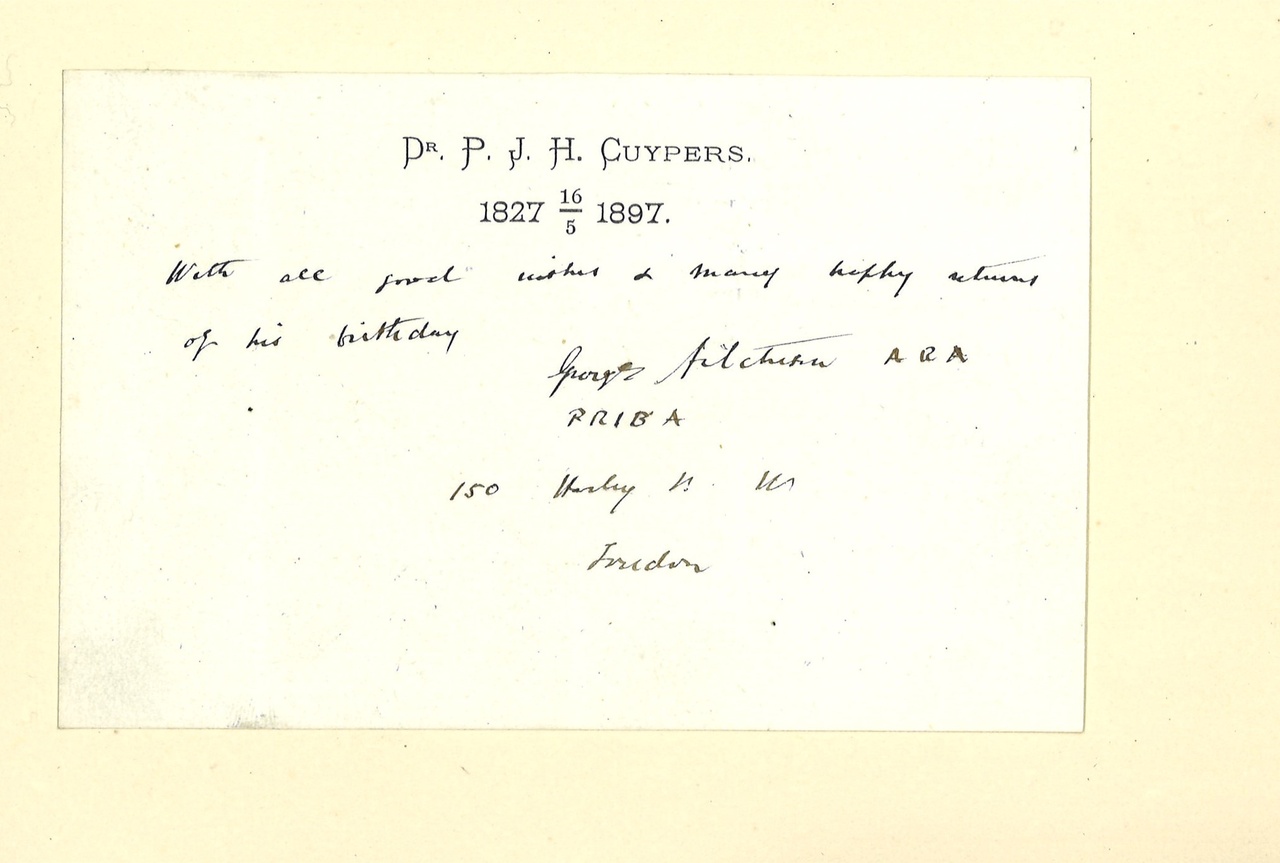 DR. P. J. H. CUYPERS.
1827 16/5 1897.
With all good wishes & many happy returns
of his birthday
George Aitchison A R A
P R I B A
150 Harley St. W
London